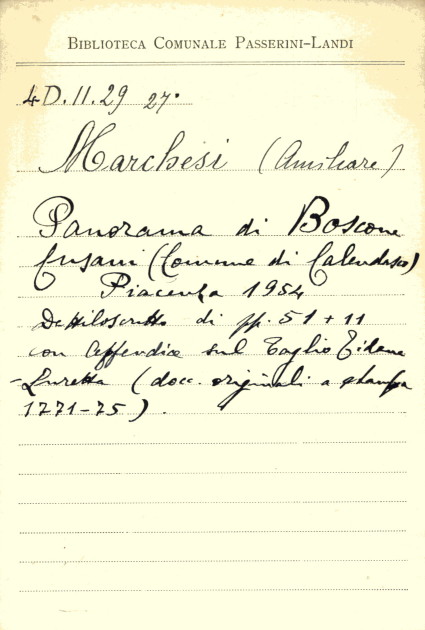 BIBLIOTECA COMUNALE PASSERINI-LANDI
4D.II.29 27°
Marchesi (Amilcare)
Panorama di Boscone
Cusani (Comune di Calendasco)
Piacenza 1954
Dattiloscritto di pp. 51 + 11
con Appendice sul Taglio Tidone
-Luretta (docc. originali a stampa
1771-75).